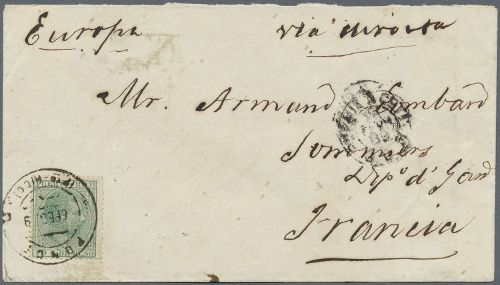 Europa via directa
Mr. Armand Lombard
Sommieres
Dpo. d' Gard
Francia
PONCE